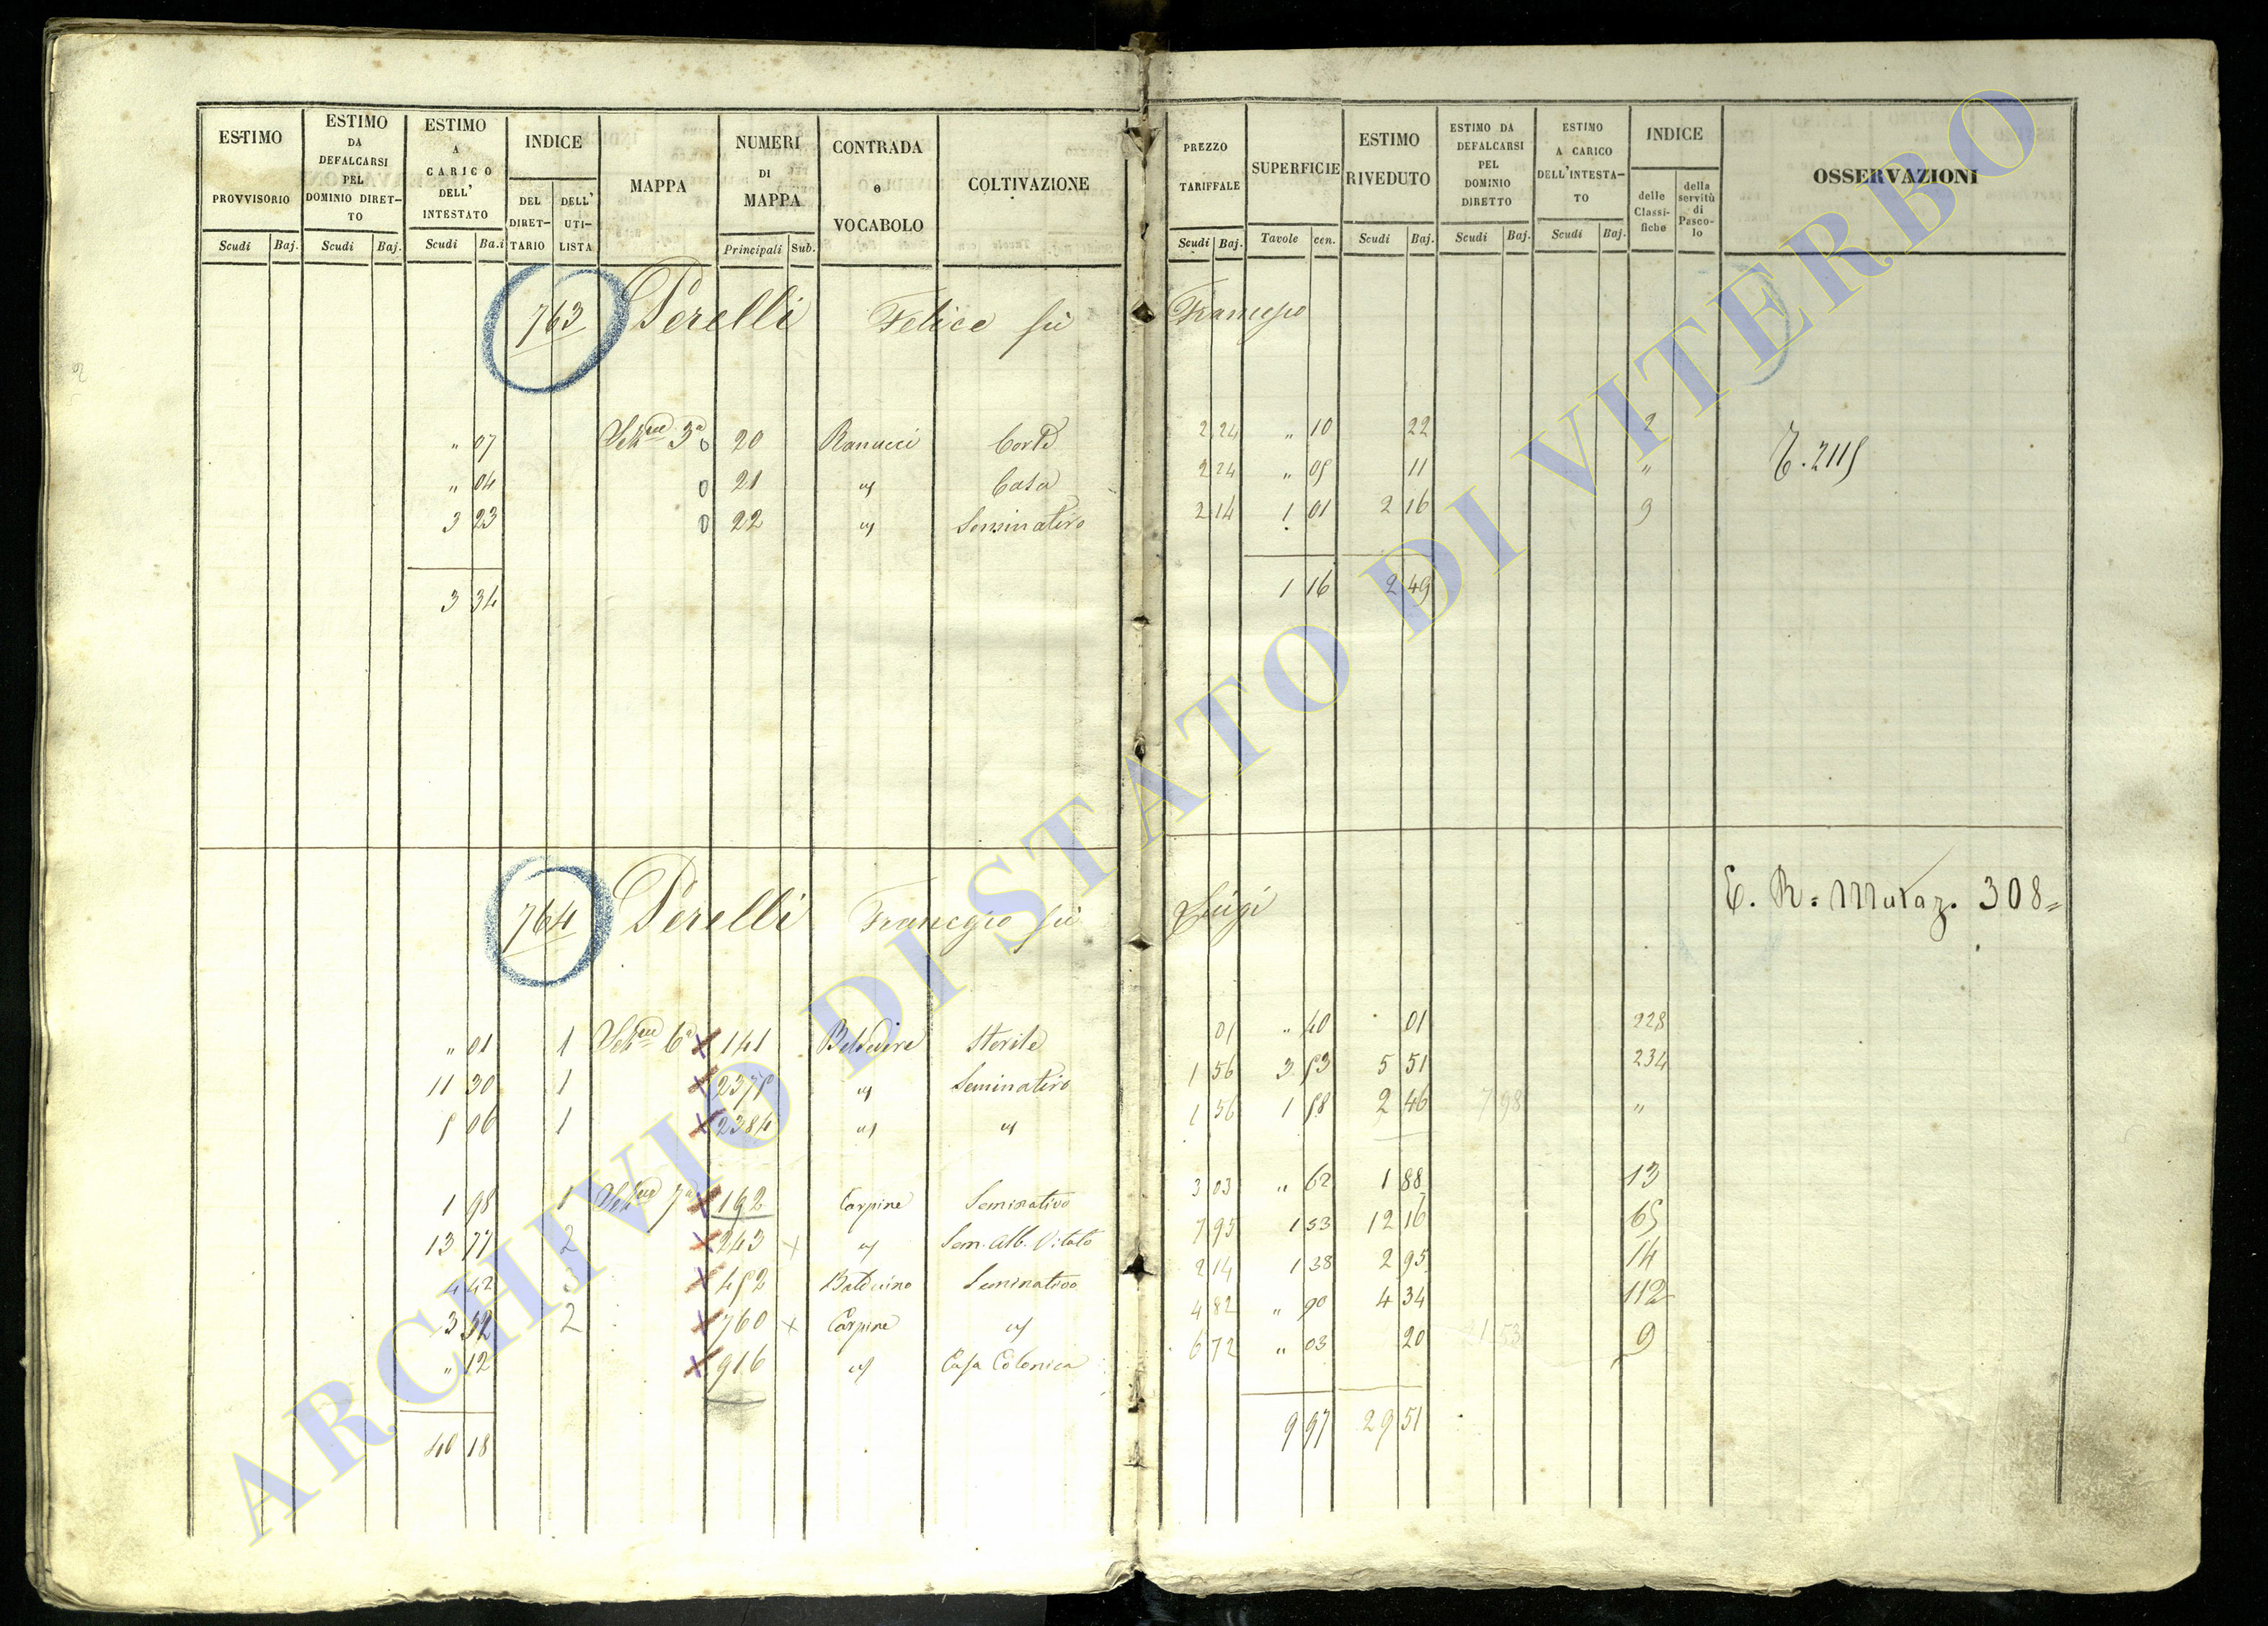 ESTIMO PROVVISORIO Scudi Baj.
ESTIMO DA DEFALCARSI PEL DOMINIO DIRETTO Scudi Baj.
ESTIMO A CARICO DELL' INTESTATO Scudi Ba.i
INDICE DEL DIRETTARIO DELL' UTILISTA
MAPPA
NUMERI DI MAPPA Principali Sub.
CONTRADA e VOCABOLO
COLTIVAZIONE
PREZZO TARIFFALE Scudi Baj.
SUPERFICIE Tavole cen.
ESTIMO RIVEDUTO Scudi Baj.
ESTIMO DA DEFALCARSI PEL DOMINIO DIRETTO Scudi Baj.
ESTIMO A CARICO DELL'INTESTATO Scudi Baj.
INDICE delle Classifiche della servitù di Pascolo
OSSERVAZIONI
763 Perelli Felice fù Francesco
" 07 3a 0 20 Ranucci Corte 2 24 " 10 22 2
T. 2115
" 04 0 21 " Casa 2 24 " 05 11 "
3 23 0 22 " Seminativo 2 14 1 01 2 16 9
3 34 1 16 2 49
764 Perelli Francesco fù Luigi
E. R. Mutaz. 308
" 01 1 6a 141 Belvedere Sterile 01 " 40 01 228
11 30 1 2375 " Seminativo 1 56 3 53 5 51 234
5 06 1 2384 " " 1 56 1 58 2 46 7 98 "
1 98 1 7a 192 Carpine Seminativo 3 03 " 62 1 88 13
13 77 2 243 x " Sem. Alb. Vitato 7 95 1 53 12 16 65
4 42 3 452 Balduino Seminativo 2 14 1 38 2 95 14
3 52 2 760 x Carpine " 4 82 " 90 4 34 112
" 12 916 " Casa Colonica 6 72 " 03 20 21 53 9
40 18 9 97 29 51
ARCHIVIO DI STATO DI VITERBO